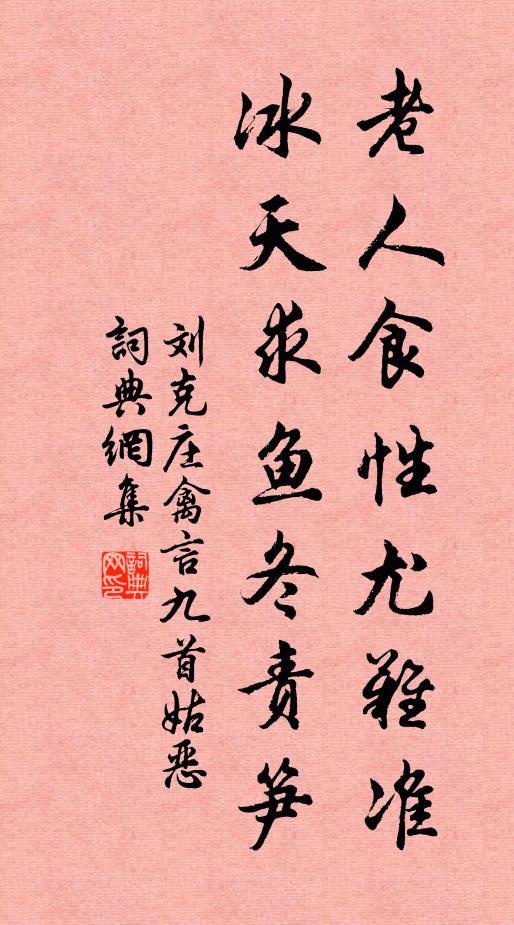 老人食性尤难准
冰天求鱼冬责笋
刘克庄禽言九首姑恶
詞典網集
詞典网印